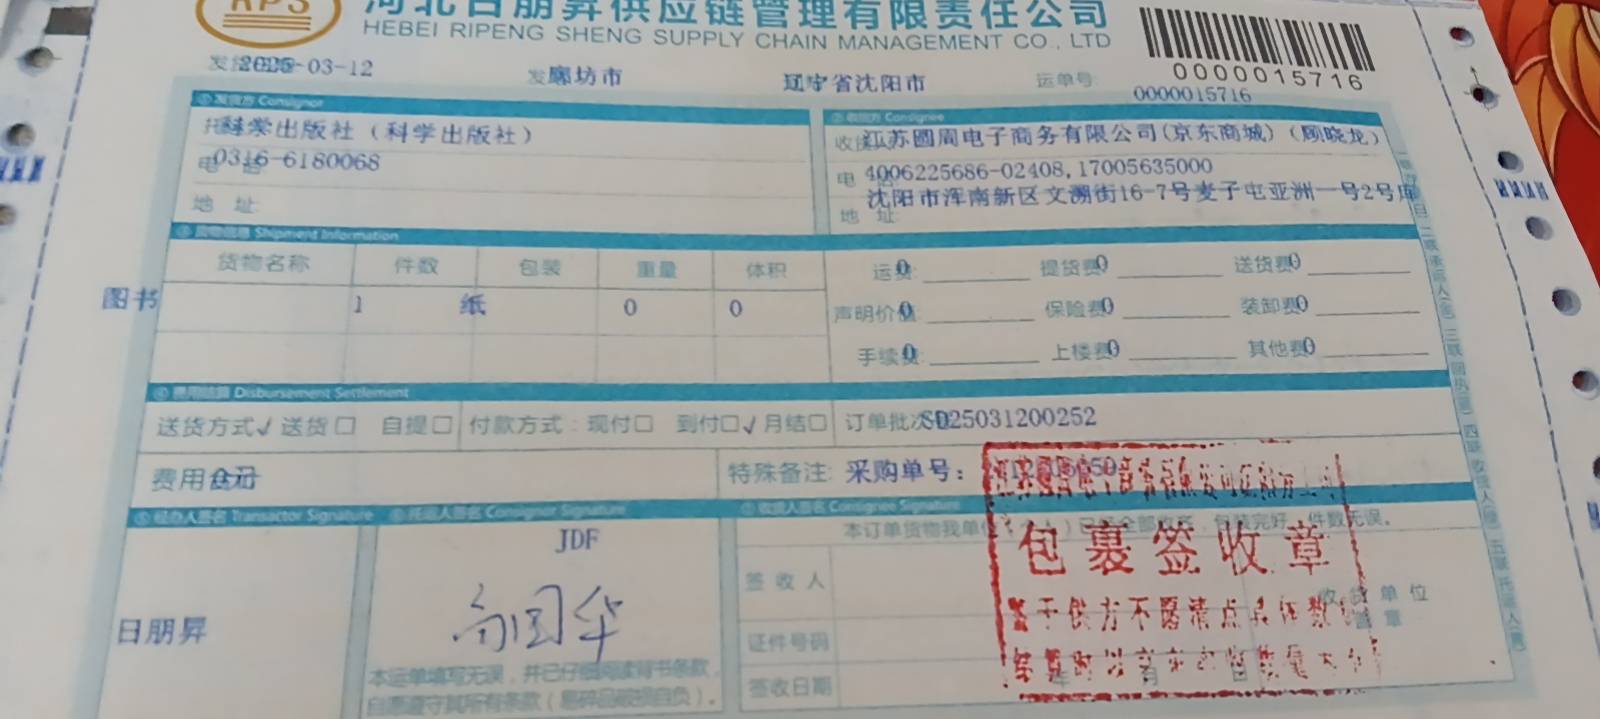 RPS
河北日朋昇供应链管理有限责任公司
HEBEI RIPENG SHENG SUPPLY CHAIN MANAGEMENT CO., LTD
0000015716
-03-12 廊坊市 辽宁省沈阳市 运单号:
0000015716
①发货方 Consignor
②收货方 Consignee
出版社（科学出版社）
江苏圆周电子商务有限公司(京东商城)（顾晓龙）
0316-6180068
电 4006225686-02408,17005635000
地 址:
沈阳市浑南新区文溯街16-7号麦子屯亚洲一号2号库
地 址:
③货物信息 Shipment Information
货物名称 件数 包装 重量 体积
运费 0 提货费 0 送货费 0
图书 1 纸 0 0
声明价值 0 保险费 0 装卸费 0
手续费 0 上楼费 0 其他费 0
④费用结算 Disbursement Settlement
送货方式√送货□ 自提□ 付款方式：现付□ 到付□√月结□ 订单批次 SD25031200252
费用合计
特殊备注: 采购单号：
⑤经办人签名 Transactor Signature ⑥托运人签名 Consignor Signature ⑦收货人签名 Consignee Signature
JDF
包裹签收章
签收人
收货单位
盖章
日朋昇
证件号码
本运单填写无误，并已仔细阅读背书条款，
自愿遵守其所有条款（易碎品破损自负）。
签收日期 年 月 日